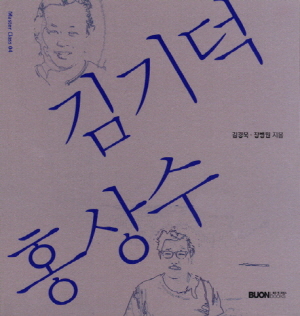 Master Class 04
김기덕
김경욱 · 장병원 지음
홍상수
BUON